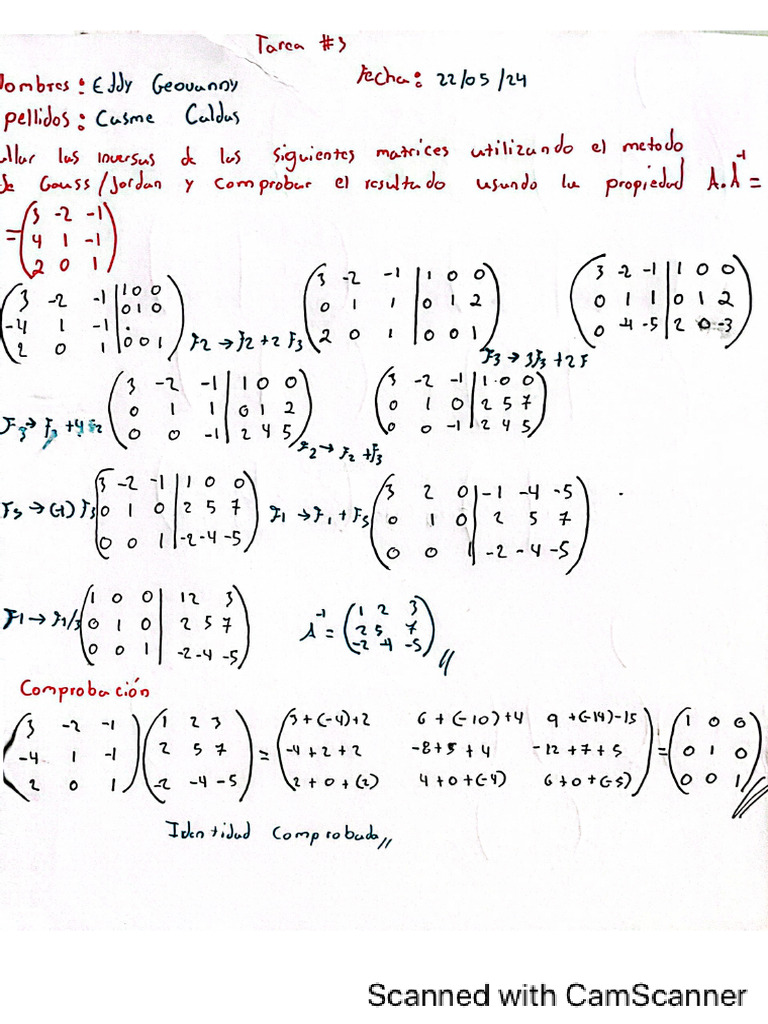 Tarea #3
Nombres: Eddy Geovanny Fecha: 22/05/24
pellidos: Cusme Caldas
llar las inversas de las siguientes matrices utilizando el metodo
de Gauss/Jordan y comprobar el resultado usando la propiedad A.A⁻¹=
=(3 -2 -1
4 1 -1
2 0 1)
(3 -2 -1 | 1 0 0
-4 1 -1 | 0 1 0
2 0 1 | 0 0 1) F2 → F2 + 2 F3
(3 -2 -1 | 1 0 0
0 1 1 | 0 1 2
2 0 1 | 0 0 1) F3 → 3F3 + 2F
(3 -2 -1 | 1 0 0
0 1 1 | 0 1 2
0 -4 -5 | 2 0 -3)
F3 → F3 + 4F2 (3 -2 -1 | 1 0 0
0 1 1 | 0 1 2
0 0 -1 | 2 4 5) F2 → F2 + F3
(3 -2 -1 | 1 0 0
0 1 0 | 2 5 7
0 0 -1 | 2 4 5)
F3 → (-1) F3 (3 -2 -1 | 1 0 0
0 1 0 | 2 5 7
0 0 1 | -2 -4 -5)
F1 → F1 + F3 (3 2 0 | -1 -4 -5
0 1 0 | 2 5 7
0 0 1 | -2 -4 -5)
F1 → F1/3 (1 0 0 | 1 2 3
0 1 0 | 2 5 7
0 0 1 | -2 -4 -5)
A⁻¹ = (1 2 3
2 5 7
-2 -4 -5) //
Comprobación
(3 -2 -1) (1 2 3) = (3+(-4)+2 6+(-10)+4 9+(-14)-15) = (1 0 0)
(-4 1 -1) (2 5 7) (-4+2+2 -8+5+4 -12+7+5) (0 1 0)
(2 0 1) (-2 -4 -5) (2+0+(2) 4+0+(-4) 6+0+(-5)) (0 0 1) //
Identidad Comprobada //
Scanned with CamScanner